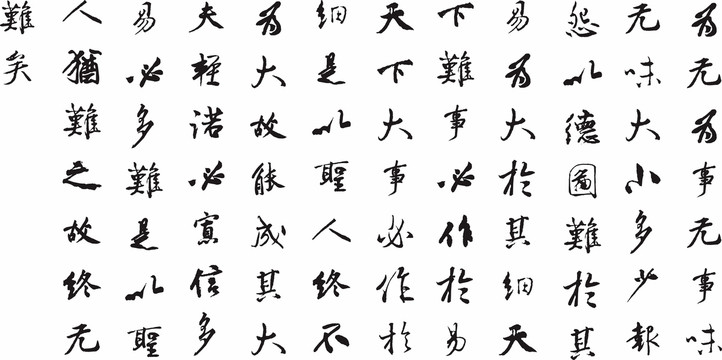 為无為事无事味
无味大小多少報
怨以德圖難於其
易為大於其細天
下難事必作於易
天下大事必作於
細是以聖人終不
為大故能成其大
夫輕諾必寡信多
易必多難是以聖
人猶難之故終无
難矣